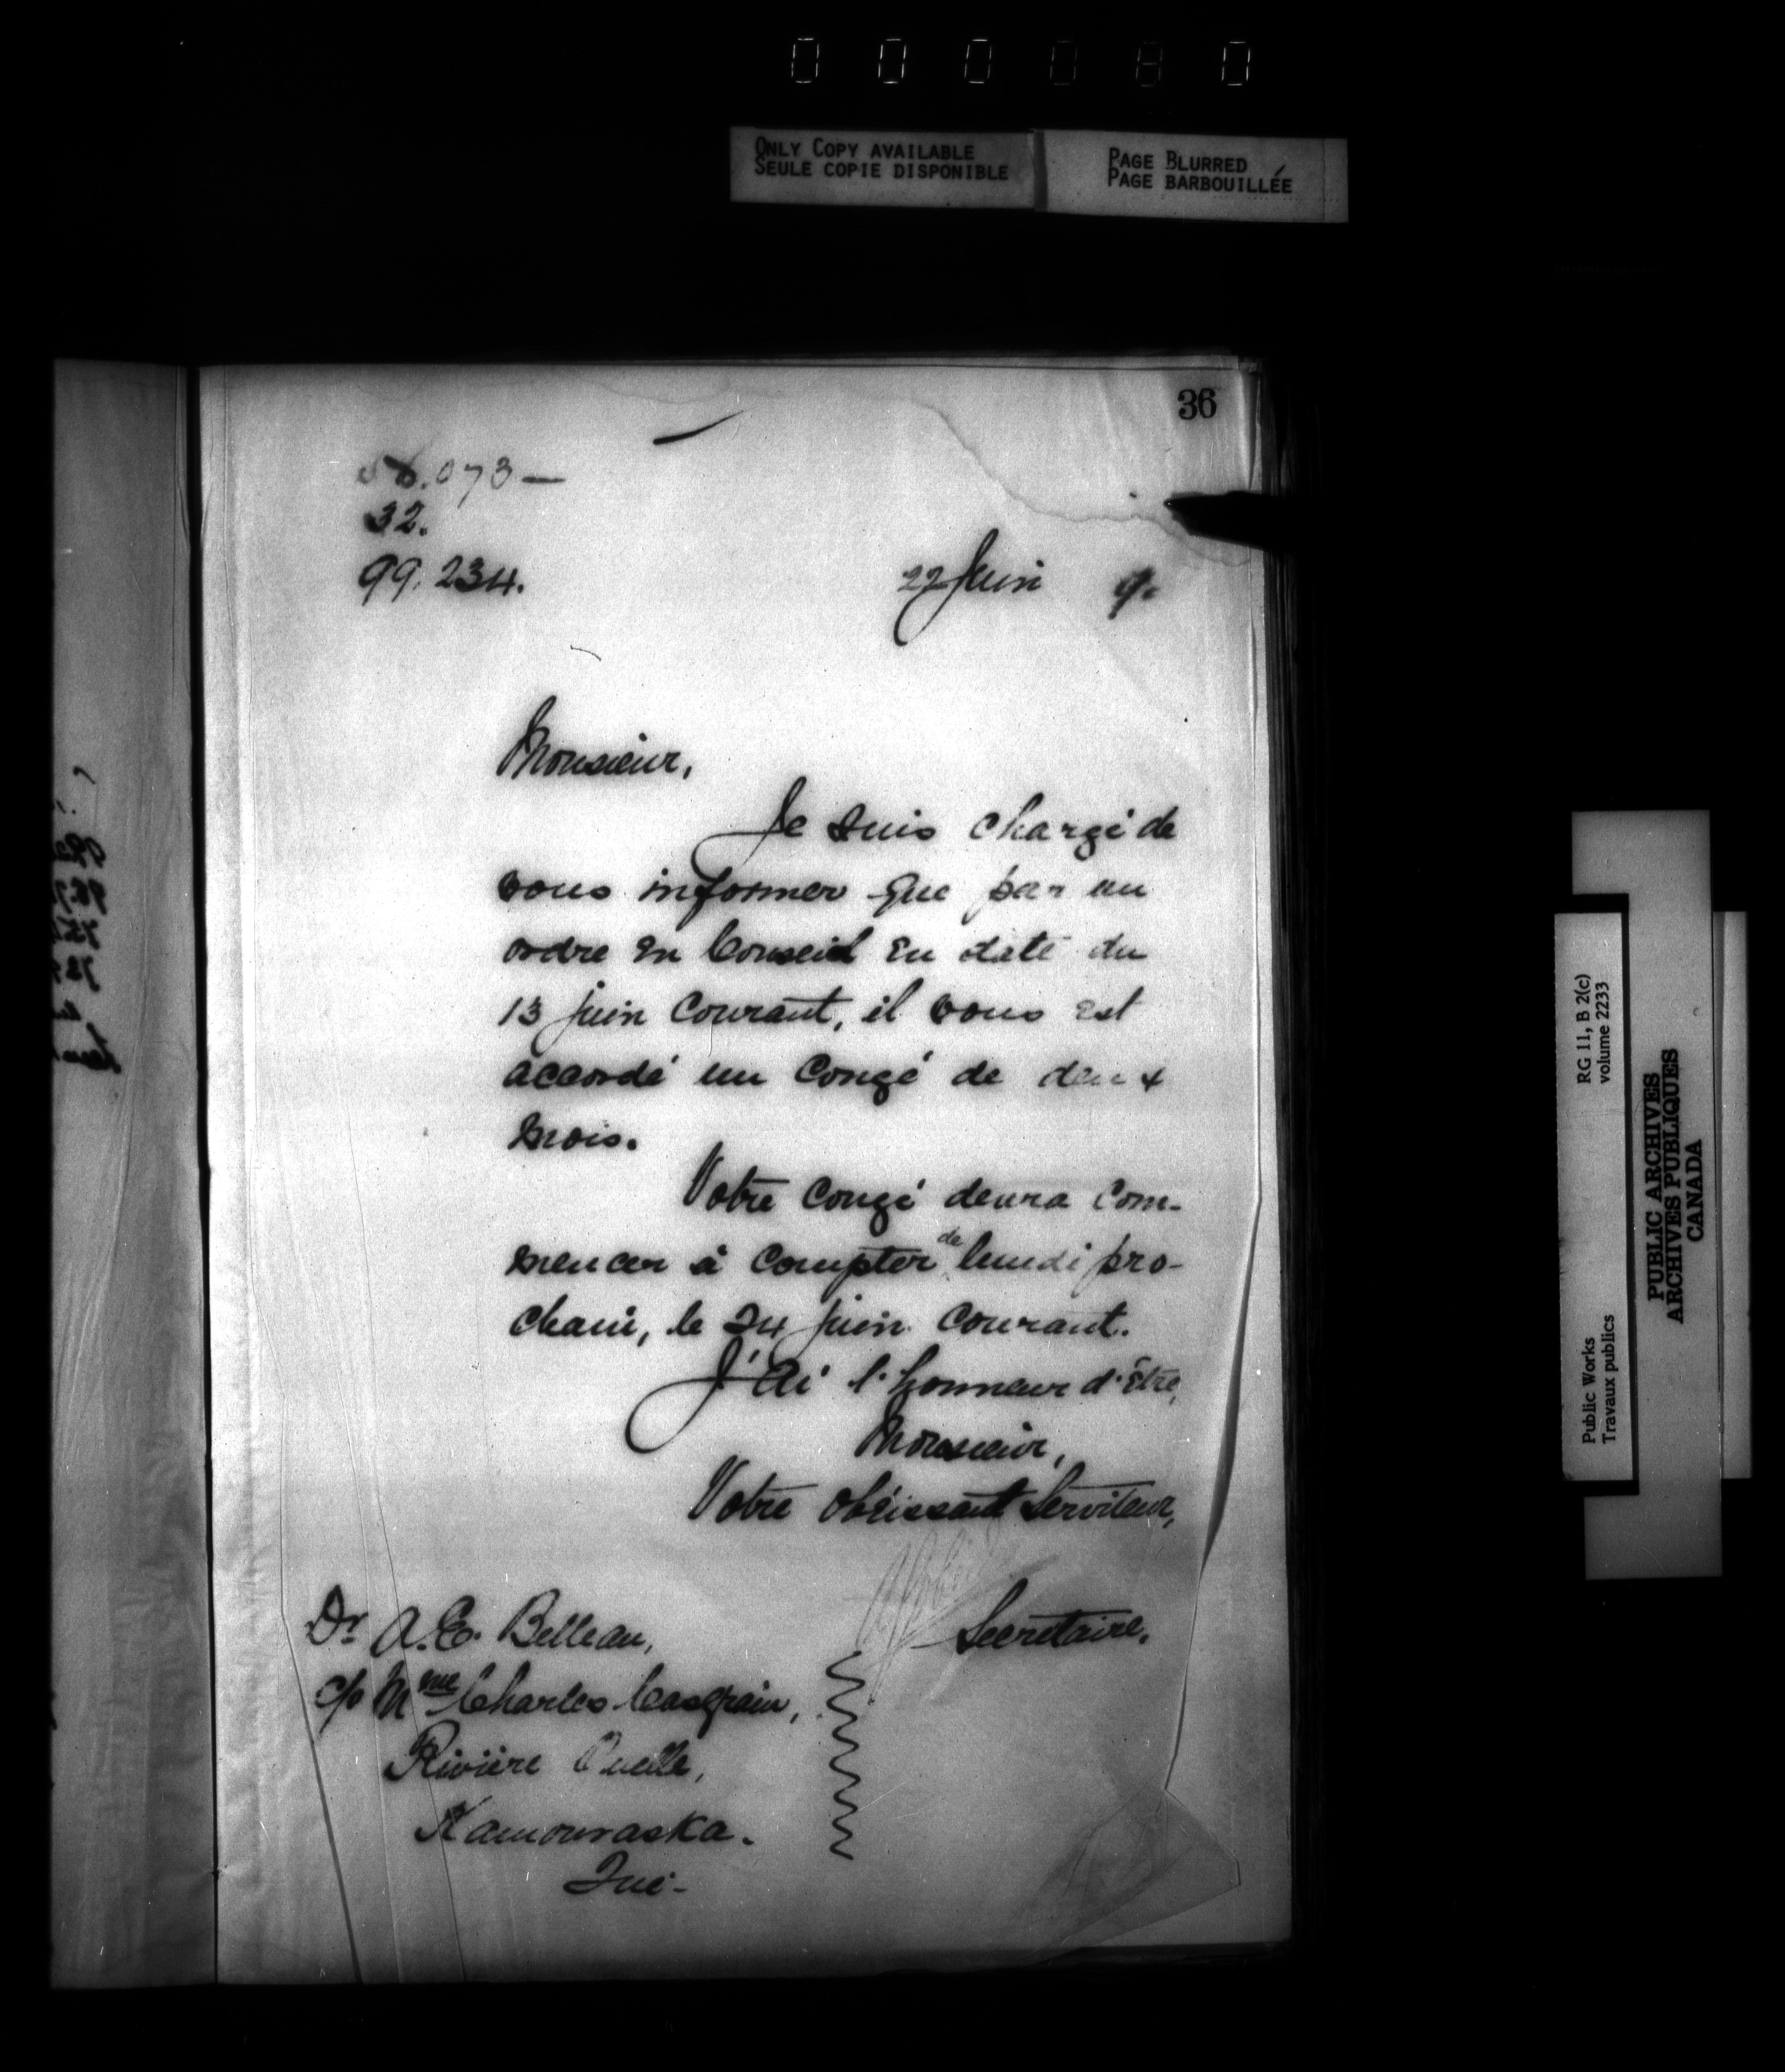 000080
ONLY COPY AVAILABLE
SEULE COPIE DISPONIBLE
PAGE BLURRED
PAGE BARBOUILLÉE
36
.073 —
32.
99.234.
22 Juin 9.
Monsieur,
Je suis chargé de
vous informer que par un
ordre en Conseil en date du
13 juin courant, il vous est
accordé un congé de deux
mois.
Votre congé devra com-
mencer à compter de lundi pro-
chain, le 24 juin courant.
J'ai l'honneur d'être,
Monsieur,
Votre obéissant Serviteur,
Secrétaire.
Dr A. E. Belleau,
c/o Mme Charles Casgrain,
Rivière Ouelle,
Kamouraska.
Qué-
Public Works
Travaux publics
RG 11, B 2(c)
volume 2233
PUBLIC ARCHIVES
ARCHIVES PUBLIQUES
CANADA